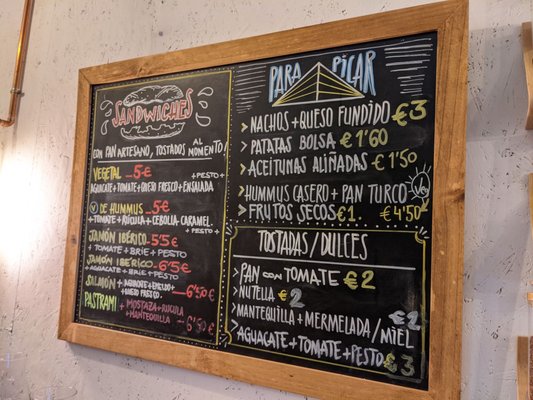 SANDWICHES
CON PAN ARTESANO, TOSTADOS AL MOMENTO!
VEGETAL 5€ +PESTO+
AGUACATE+TOMATE+QUESO FRESCO+ENSALADA
V DE HUMMUS 5€
+TOMATE+RÚCULA+CEBOLLA CARAMEL.
+PESTO+
JAMÓN IBÉRICO 5'5€
+TOMATE+BRIE+PESTO+
JAMÓN IBÉRICO 6'5€
+AGUACATE+BRIE+PESTO
SALMÓN +AGUACATE+ENELDO+
QUESO FRESCO. 6'50€
PASTRAMI +MOSTAZA+RÚCULA
+MANTEQUILLA 6'50€
PARA PICAR
> NACHOS+QUESO FUNDIDO €3
> PATATAS BOLSA €1'60
> ACEITUNAS ALIÑADAS €1'50
> HUMMUS CASERO+PAN TURCO €4'50
> FRUTOS SECOS €1.
TOSTADAS/DULCES
> PAN CON TOMATE €2
> NUTELLA €2
> MANTEQUILLA+MERMELADA/MIEL €2
> AGUACATE+TOMATE+PESTO €3